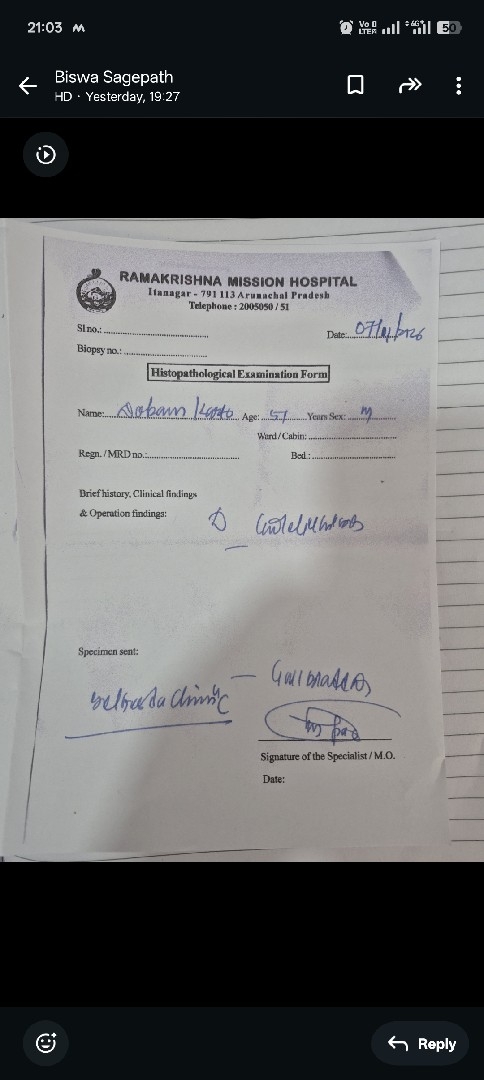 21:03
Vo LTE 4G+ 50
Biswa Sagepath
HD · Yesterday, 19:27
RAMAKRISHNA MISSION HOSPITAL
Itanagar - 791 113 Arunachal Pradesh
Telephone : 2005050 / 51
Sl no.:
Date:
Biopsy no.:
Histopathological Examination Form
Name: Age: 51 Years Sex: M
Ward / Cabin:
Regn. / MRD no.: Bed :
Brief history, Clinical findings
& Operation findings:
Specimen sent:
Clinic
Signature of the Specialist / M.O.
Date:
Reply